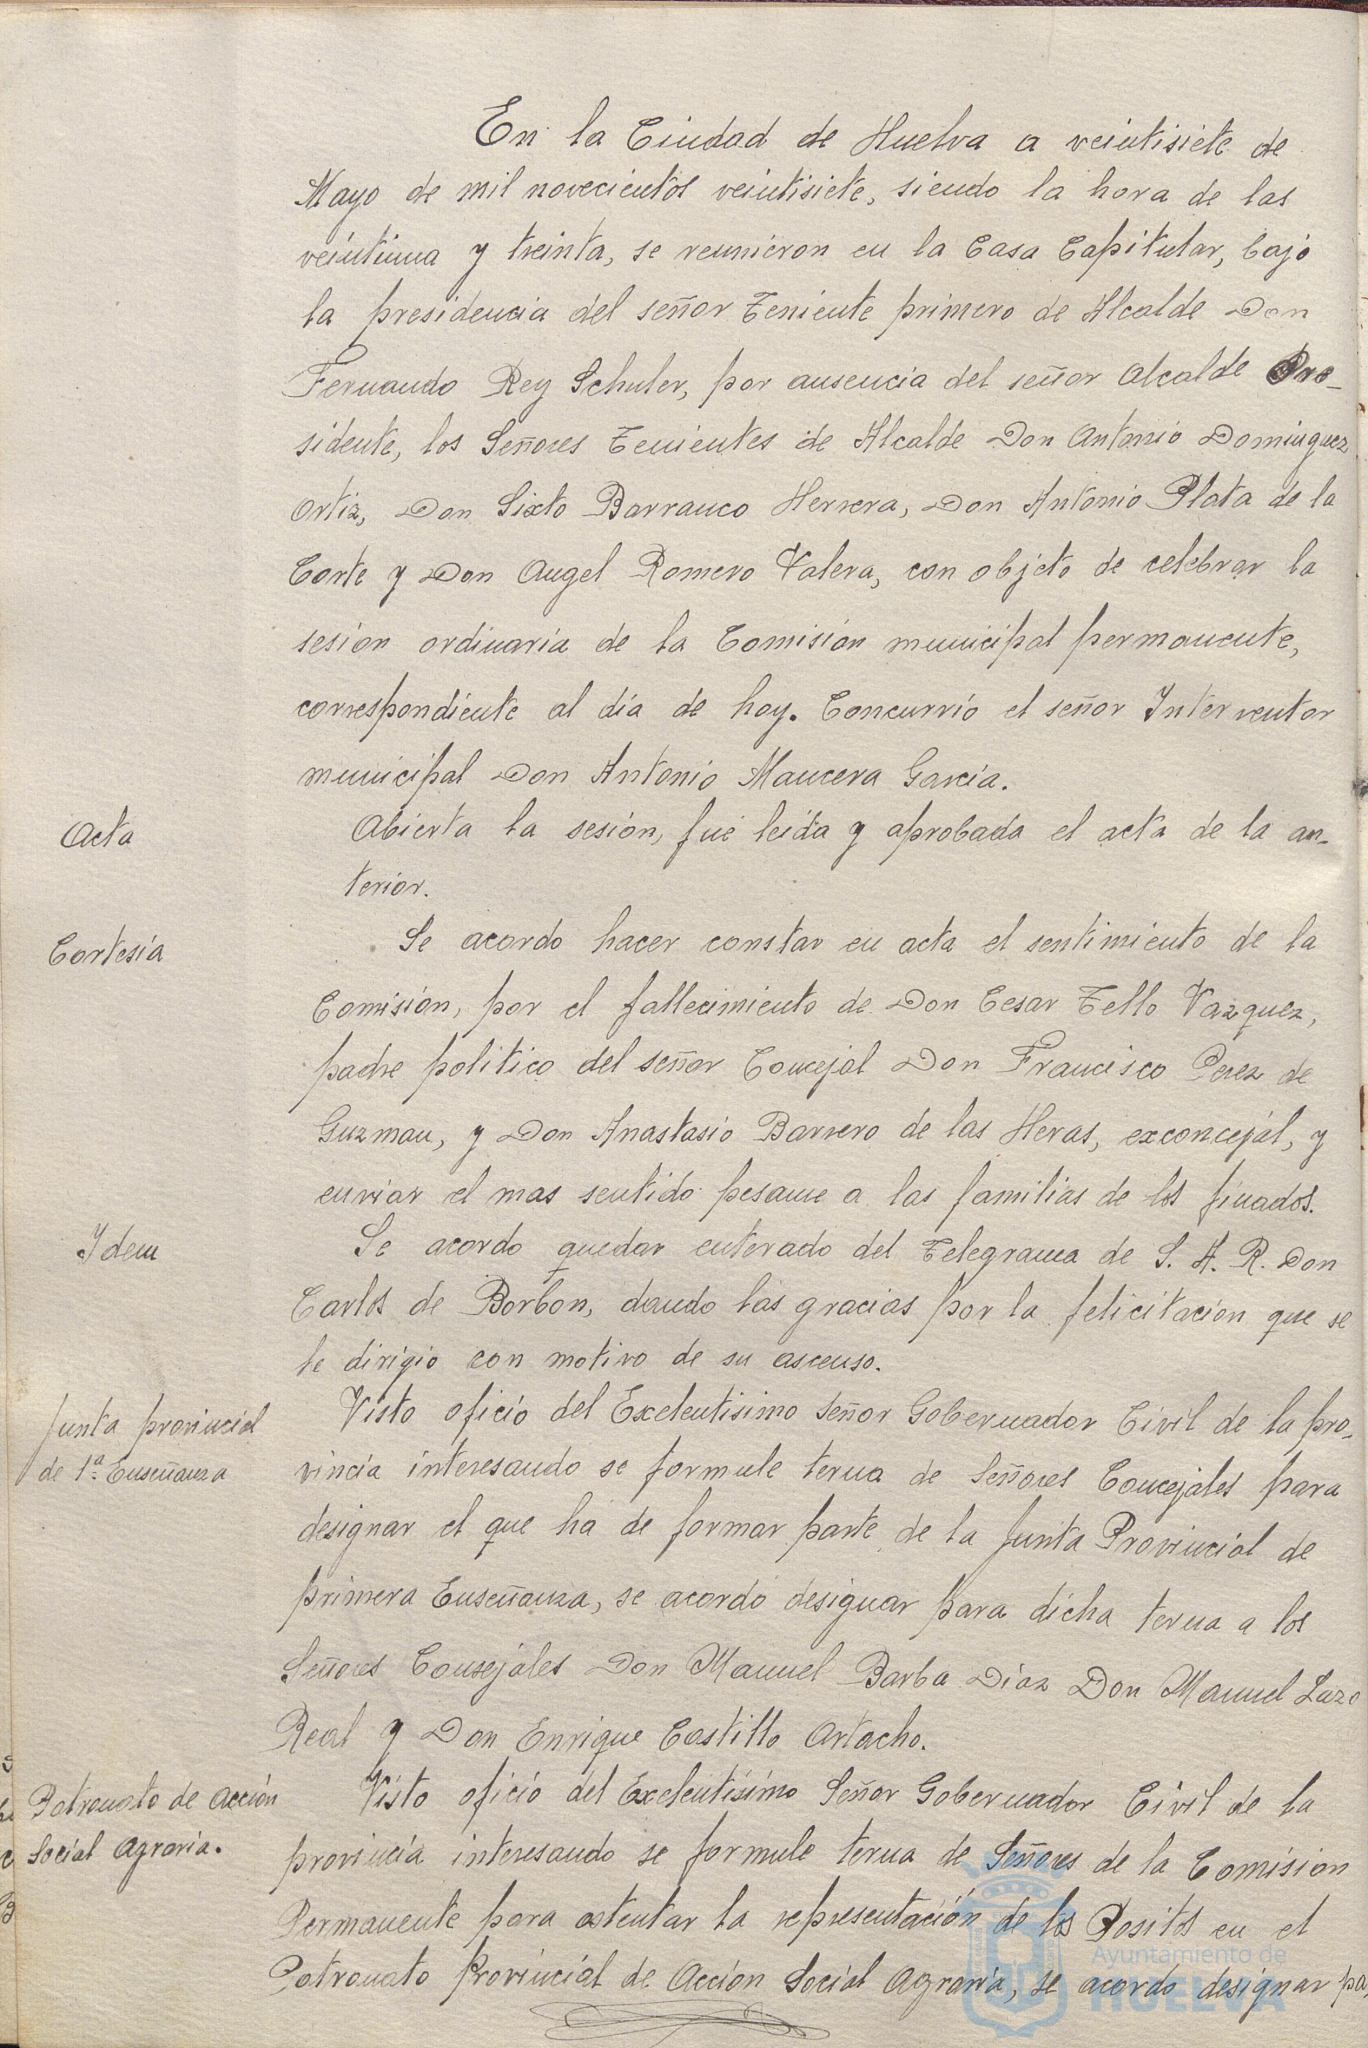 En la Ciudad de Huelva a veintisiete de
Mayo de mil novecientos veintisiete, siendo la hora de las
veintiuna y treinta, se reunieron en la Casa Capitular, bajo
la presidencia del señor Teniente primero de Alcalde Don
Fernando Rey Schuler, por ausencia del señor Alcalde Pre-
sidente, los Señores Tenientes de Alcalde Don Antonio Dominguez
Ortiz, Don Sixto Barranco Herrera, Don Antonio Plata de la
Corte y Don Angel Romero Valera, con objeto de celebrar la
sesion ordinaria de la Comisión municipal permanente,
correspondiente al dia de hoy. Concurrió el señor Interventor
municipal Don Antonio Maucera Garcia.
Acta
Abierta la sesión, fué leida y aprobada el acta de la an-
terior.
Cortesía
Se acordo hacer constar en acta el sentimiento de la
Comisión, por el fallecimiento de Don Cesar Tello Vazquez,
padre politico del señor Concejal Don Francisco Perez de
Guzman, y Don Anastasio Barrero de las Heras, exconcejál, y
enviar el mas sentido pesame a las familias de los finados.
Ydem
Se acordo quedar enterado del Telegrama de S. A. R. Don
Carlos de Borbon, dando las gracias por la felicitacion que se
le dirigio con motivo de su ascenso.
Junta provincial
de 1ª Enseñanza
Visto oficio del Excelentisimo Señor Gobernador Civil de la pro-
vincia interesando se formule terna de Señores Concejales para
designar el que ha de formar parte de la Junta Provincial de
primera Enseñanza, se acordó designar para dicha terna a los
Señores Consejales Don Manuel Barba Diaz Don Manuel Lazo
Real y Don Enrique Castillo Artacho.
Patronato de Acción
Social Agraria.
Visto oficio del Excelentísimo Señor Gobernador Civil de la
provincia interesando se formule terna de Señores de la Comision
Permanente para ostentar la representación de los Positos en el
Patronato Provincial de Acción Social Agraria, se acordo designar pa-
Ayuntamiento de
HUELVA